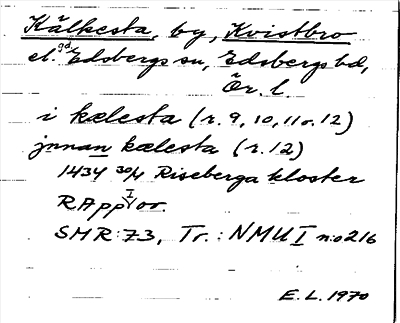 Kälkesta, by, Kvistbro
el. gd Edsbergs sn, Edsbergs hd,
Ör. l.
i kælesta (r. 9, 10, 11 o. 12)
jnnan kælesta (r. 12)
1434 30/4 Riseberga kloster
RApp I or.
SMR: 73, Tr.: NMU I no 216
E. L. 1970